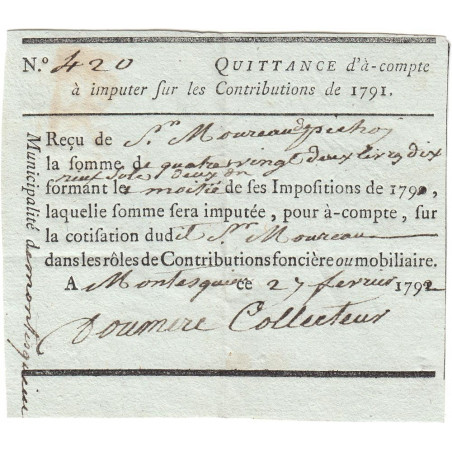 N.º 420 QUITTANCE d'à-compte
à imputer sur les Contributions de 1791.
Reçu de Sr. Moureau
la somme de quatre vingt deux livres dix
neuf sols deux dn
formant la moitié de ses Impositions de 1790,
laquelle somme sera imputée, pour à-compte, sur
la cotisation dudit Sr. Moureau
dans les rôles de Contributions foncière ou mobiliaire.
A Montesquieu ce 27 fevrier 1792
Doumere Collecteur
Municipalité de montesquieu